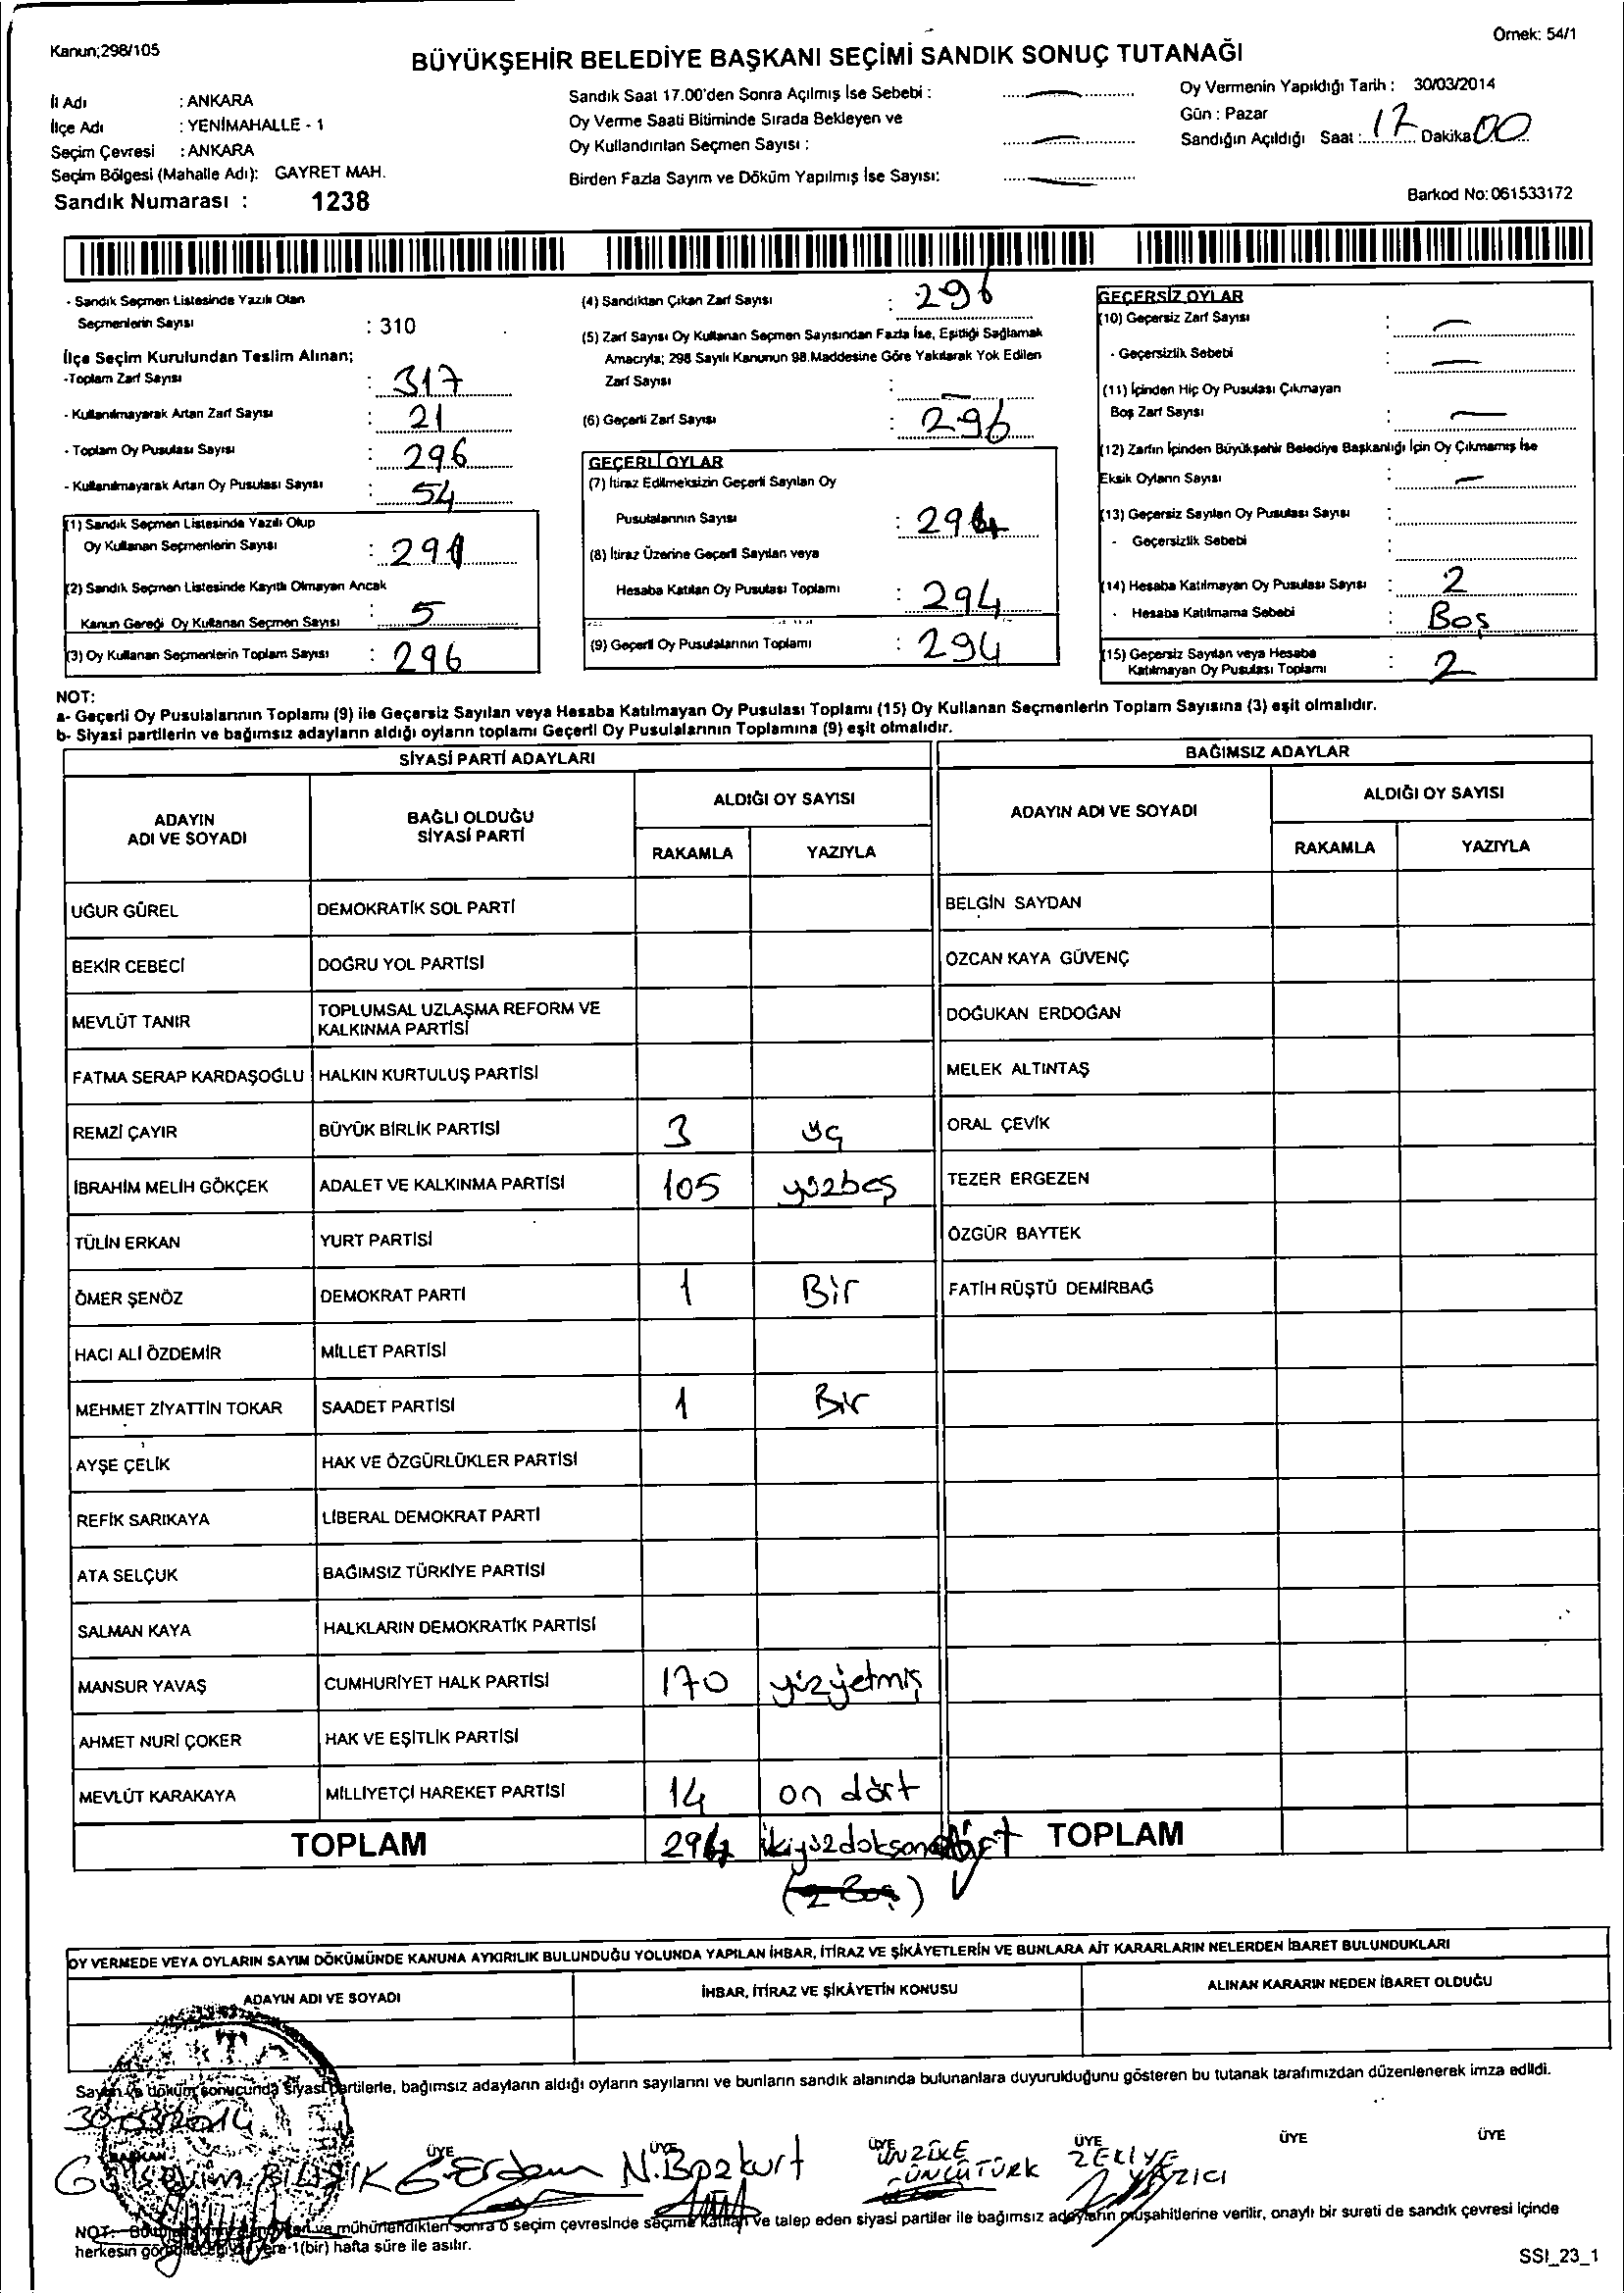 Kanun;298/105
Örnek: 54/1
BÜYÜKŞEHİR BELEDİYE BAŞKANI SEÇİMİ SANDIK SONUÇ TUTANAĞI
İl Adı : ANKARA
İlçe Adı : YENİMAHALLE - 1
Seçim Çevresi : ANKARA
Seçim Bölgesi (Mahalle Adı): GAYRET MAH.
Sandık Numarası : 1238
Sandık Saat 17.00'den Sonra Açılmış İse Sebebi :
Oy Verme Saati Bitiminde Sırada Bekleyen ve
Oy Kullandırılan Seçmen Sayısı :
Birden Fazla Sayım ve Döküm Yapılmış İse Sayısı:
Oy Vermenin Yapıldığı Tarih : 30/03/2014
Gün : Pazar
Sandığın Açıldığı Saat : 17 Dakika 00
Barkod No:061533172
- Sandık Seçmen Listesinde Yazılı Olan
Seçmenlerin Sayısı : 310
İlçe Seçim Kurulundan Teslim Alınan;
-Toplam Zarf Sayısı : 317
- Kullanılmayarak Artan Zarf Sayısı : 21
- Toplam Oy Pusulası Sayısı : 296
- Kullanılmayarak Artan Oy Pusulası Sayısı : 54
(1) Sandık Seçmen Listesinde Yazılı Olup
Oy Kullanan Seçmenlerin Sayısı : 291
(2) Sandık Seçmen Listesinde Kayıtlı Olmayan Ancak
Kanun Gereği Oy Kullanan Seçmen Sayısı : 5
(3) Oy Kullanan Seçmenlerin Toplam Sayısı : 296
(4) Sandıktan Çıkan Zarf Sayısı : 296
(5) Zarf Sayısı Oy Kullanan Seçmen Sayısından Fazla İse, Eşitliği Sağlamak
Amacıyla; 298 Sayılı Kanunun 98.Maddesine Göre Yakılarak Yok Edilen
Zarf Sayısı : –
(6) Geçerli Zarf Sayısı : 296
GEÇERLİ OYLAR
(7) İtiraz Edilmeksizin Geçerli Sayılan Oy
Pusulalarının Sayısı : 294
(8) İtiraz Üzerine Geçerli Sayılan veya
Hesaba Katılan Oy Pusulası Toplamı : 294
(9) Geçerli Oy Pusulalarının Toplamı : 294
GEÇERSİZ OYLAR
(10) Geçersiz Zarf Sayısı : –
- Geçersizlik Sebebi : –
(11) İçinden Hiç Oy Pusulası Çıkmayan
Boş Zarf Sayısı : –
(12) Zarfın İçinden Büyükşehir Belediye Başkanlığı İçin Oy Çıkmamış İse
Eksik Oyların Sayısı : –
(13) Geçersiz Sayılan Oy Pusulası Sayısı :
- Geçersizlik Sebebi :
(14) Hesaba Katılmayan Oy Pusulası Sayısı : 2
- Hesaba Katılmama Sebebi : Boş
(15) Geçersiz Sayılan veya Hesaba
Katılmayan Oy Pusulası Toplamı : 2
NOT:
a- Geçerli Oy Pusulalarının Toplamı (9) ile Geçersiz Sayılan veya Hesaba Katılmayan Oy Pusulası Toplamı (15) Oy Kullanan Seçmenlerin Toplam Sayısına (3) eşit olmalıdır.
b- Siyasi partilerin ve bağımsız adayların aldığı oyların toplamı Geçerli Oy Pusulalarının Toplamına (9) eşit olmalıdır.
SİYASİ PARTİ ADAYLARI
ADAYIN ADI VE SOYADI
BAĞLI OLDUĞU SİYASİ PARTİ
ALDIĞI OY SAYISI
RAKAMLA YAZIYLA
UĞUR GÜREL DEMOKRATİK SOL PARTİ
BEKİR CEBECİ DOĞRU YOL PARTİSİ
MEVLÜT TANIR TOPLUMSAL UZLAŞMA REFORM VE
KALKINMA PARTİSİ
FATMA SERAP KARDAŞOĞLU HALKIN KURTULUŞ PARTİSİ
REMZİ ÇAYIR BÜYÜK BİRLİK PARTİSİ 3 üç
İBRAHİM MELİH GÖKÇEK ADALET VE KALKINMA PARTİSİ 105 yüzbeş
TÜLİN ERKAN YURT PARTİSİ
ÖMER ŞENÖZ DEMOKRAT PARTİ 1 Bir
HACI ALİ ÖZDEMİR MİLLET PARTİSİ
MEHMET ZİYATTİN TOKAR SAADET PARTİSİ 1 Bir
AYŞE ÇELİK HAK VE ÖZGÜRLÜKLER PARTİSİ
REFİK SARIKAYA LİBERAL DEMOKRAT PARTİ
ATA SELÇUK BAĞIMSIZ TÜRKİYE PARTİSİ
SALMAN KAYA HALKLARIN DEMOKRATİK PARTİSİ
MANSUR YAVAŞ CUMHURİYET HALK PARTİSİ 170 yüzyetmiş
AHMET NURİ ÇOKER HAK VE EŞİTLİK PARTİSİ
MEVLÜT KARAKAYA MİLLİYETÇİ HAREKET PARTİSİ 14 on dört
TOPLAM 294 ikiyüzdoksandört
(2 Boş)
BAĞIMSIZ ADAYLAR
ADAYIN ADI VE SOYADI
ALDIĞI OY SAYISI
RAKAMLA YAZIYLA
BELGİN SAYDAN
ÖZCAN KAYA GÜVENÇ
DOĞUKAN ERDOĞAN
MELEK ALTINTAŞ
ORAL ÇEVİK
TEZER ERGEZEN
ÖZGÜR BAYTEK
FATİH RÜŞTÜ DEMİRBAĞ
TOPLAM
OY VERMEDE VEYA OYLARIN SAYIM DÖKÜMÜNDE KANUNA AYKIRILIK BULUNDUĞU YOLUNDA YAPILAN İHBAR, İTİRAZ VE ŞİKÂYETLERİN VE BUNLARA AİT KARARLARIN NELERDEN İBARET BULUNDUKLARI
ADAYIN ADI VE SOYADI
İHBAR, İTİRAZ VE ŞİKÂYETİN KONUSU
ALINAN KARARIN NEDEN İBARET OLDUĞU
Sayım ve döküm sonucunda siyasi partilerle, bağımsız adayların aldığı oyların sayılarını ve bunların sandık alanında bulunanlara duyurukduğunu gösteren bu tutanak tarafımızdan düzenlenerek imza edildi.
30.03.2014
BAŞKAN ÜYE ÜYE ÜYE ÜYE ÜYE ÜYE
BİLİŞİK G.Erdem N.Bozkurt ÜNZİLE ÜNCÜTÜRK ZEKİYE YAZICI
NOT: ve mühürlendikten sonra o seçim çevresinde seçime katılan ve talep eden siyasi partiler ile bağımsız adayların müşahitlerine verilir, onaylı bir sureti de sandık çevresi içinde
herkesin görebileceği bir yere 1(bir) hafta süre ile asılır.
SSI_23_1